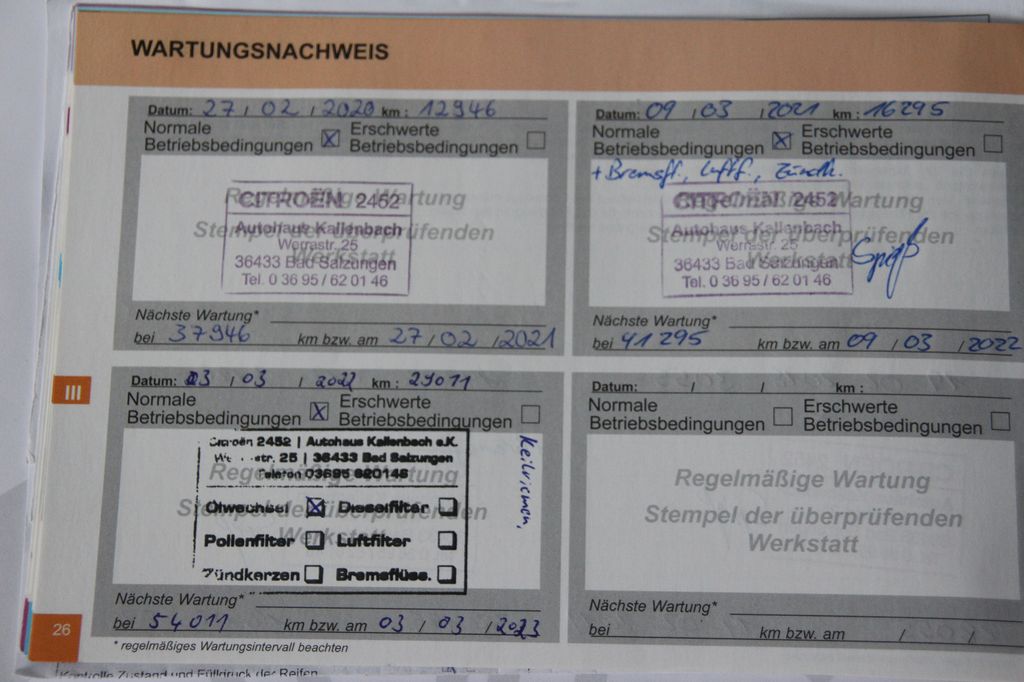 WARTUNGSNACHWEIS
Datum: 27 / 02 / 2020 km : 12946
Normale Betriebsbedingungen ☒ Erschwerte Betriebsbedingungen ☐
Regelmäßige Wartung
Stempel der überprüfenden
Werkstatt
CITROËN 2452
Autohaus Kallenbach
Werrastr. 25
36433 Bad Salzungen
Tel. 0 36 95 / 62 01 46
Nächste Wartung*
bei 37946 km bzw. am 27 / 02 / 2021
Datum: 09 / 03 / 2021 km : 16295
Normale Betriebsbedingungen ☒ Erschwerte Betriebsbedingungen ☐
+ Bremsfl., Luftf., Zündk.
Regelmäßige Wartung
Stempel der überprüfenden
Werkstatt
CITROËN 2452
Autohaus Kallenbach
Werrastr. 25
36433 Bad Salzungen
Tel. 0 36 95 / 62 01 46
Nächste Wartung*
bei 41295 km bzw. am 09 / 03 / 2022
III
Datum: 03 / 03 / 2022 km : 29011
Normale Betriebsbedingungen ☒ Erschwerte Betriebsbedingungen ☐
Regelmäßige Wartung
Stempel der überprüfenden
Werkstatt
Citroën 2452 | Autohaus Kallenbach e.K.
str. 25 | 36433 Bad Salzungen
Telefon 03695 620146
Ölwechsel ☒ Dieselfilter ☐
Pollenfilter ☐ Luftfilter ☐
Zündkerzen ☐ Bremsflüss. ☐
Keilriemen,
Nächste Wartung*
bei 54011 km bzw. am 03 / 03 / 2023
Datum: / / km :
Normale Betriebsbedingungen ☐ Erschwerte Betriebsbedingungen ☐
Regelmäßige Wartung
Stempel der überprüfenden
Werkstatt
Nächste Wartung*
bei km bzw. am / /
26
* regelmäßiges Wartungsintervall beachten
Kontrolle Zustand und Fülldruck der Reifen